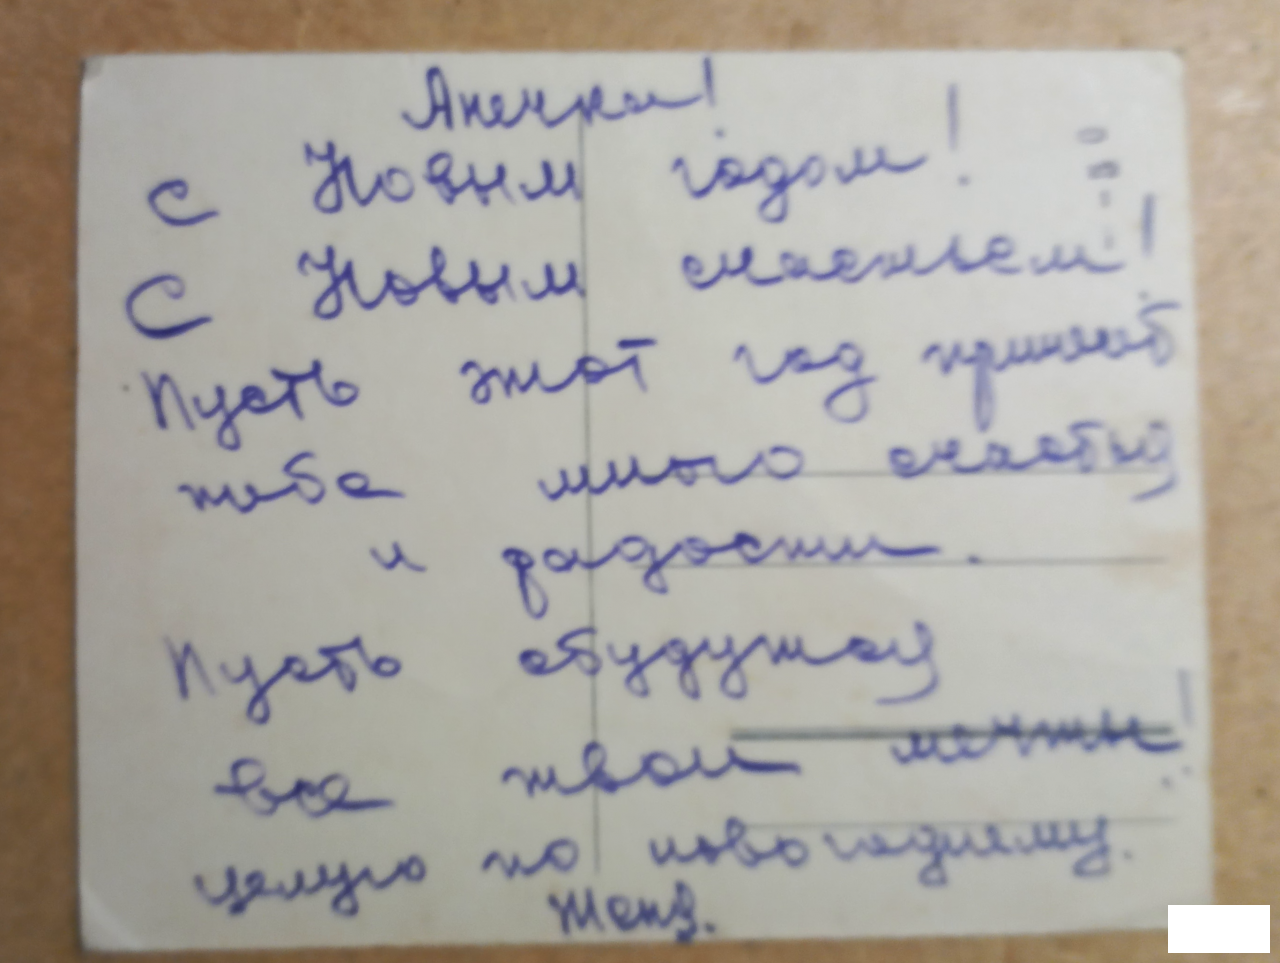 Анечка!
с Новым годом!
С Новым счастьем!
Пусть этот год принесёт
тебе много счастья
и радости.
Пусть сбудутся
все твои мечты!
целую по новогоднему.
Женя.